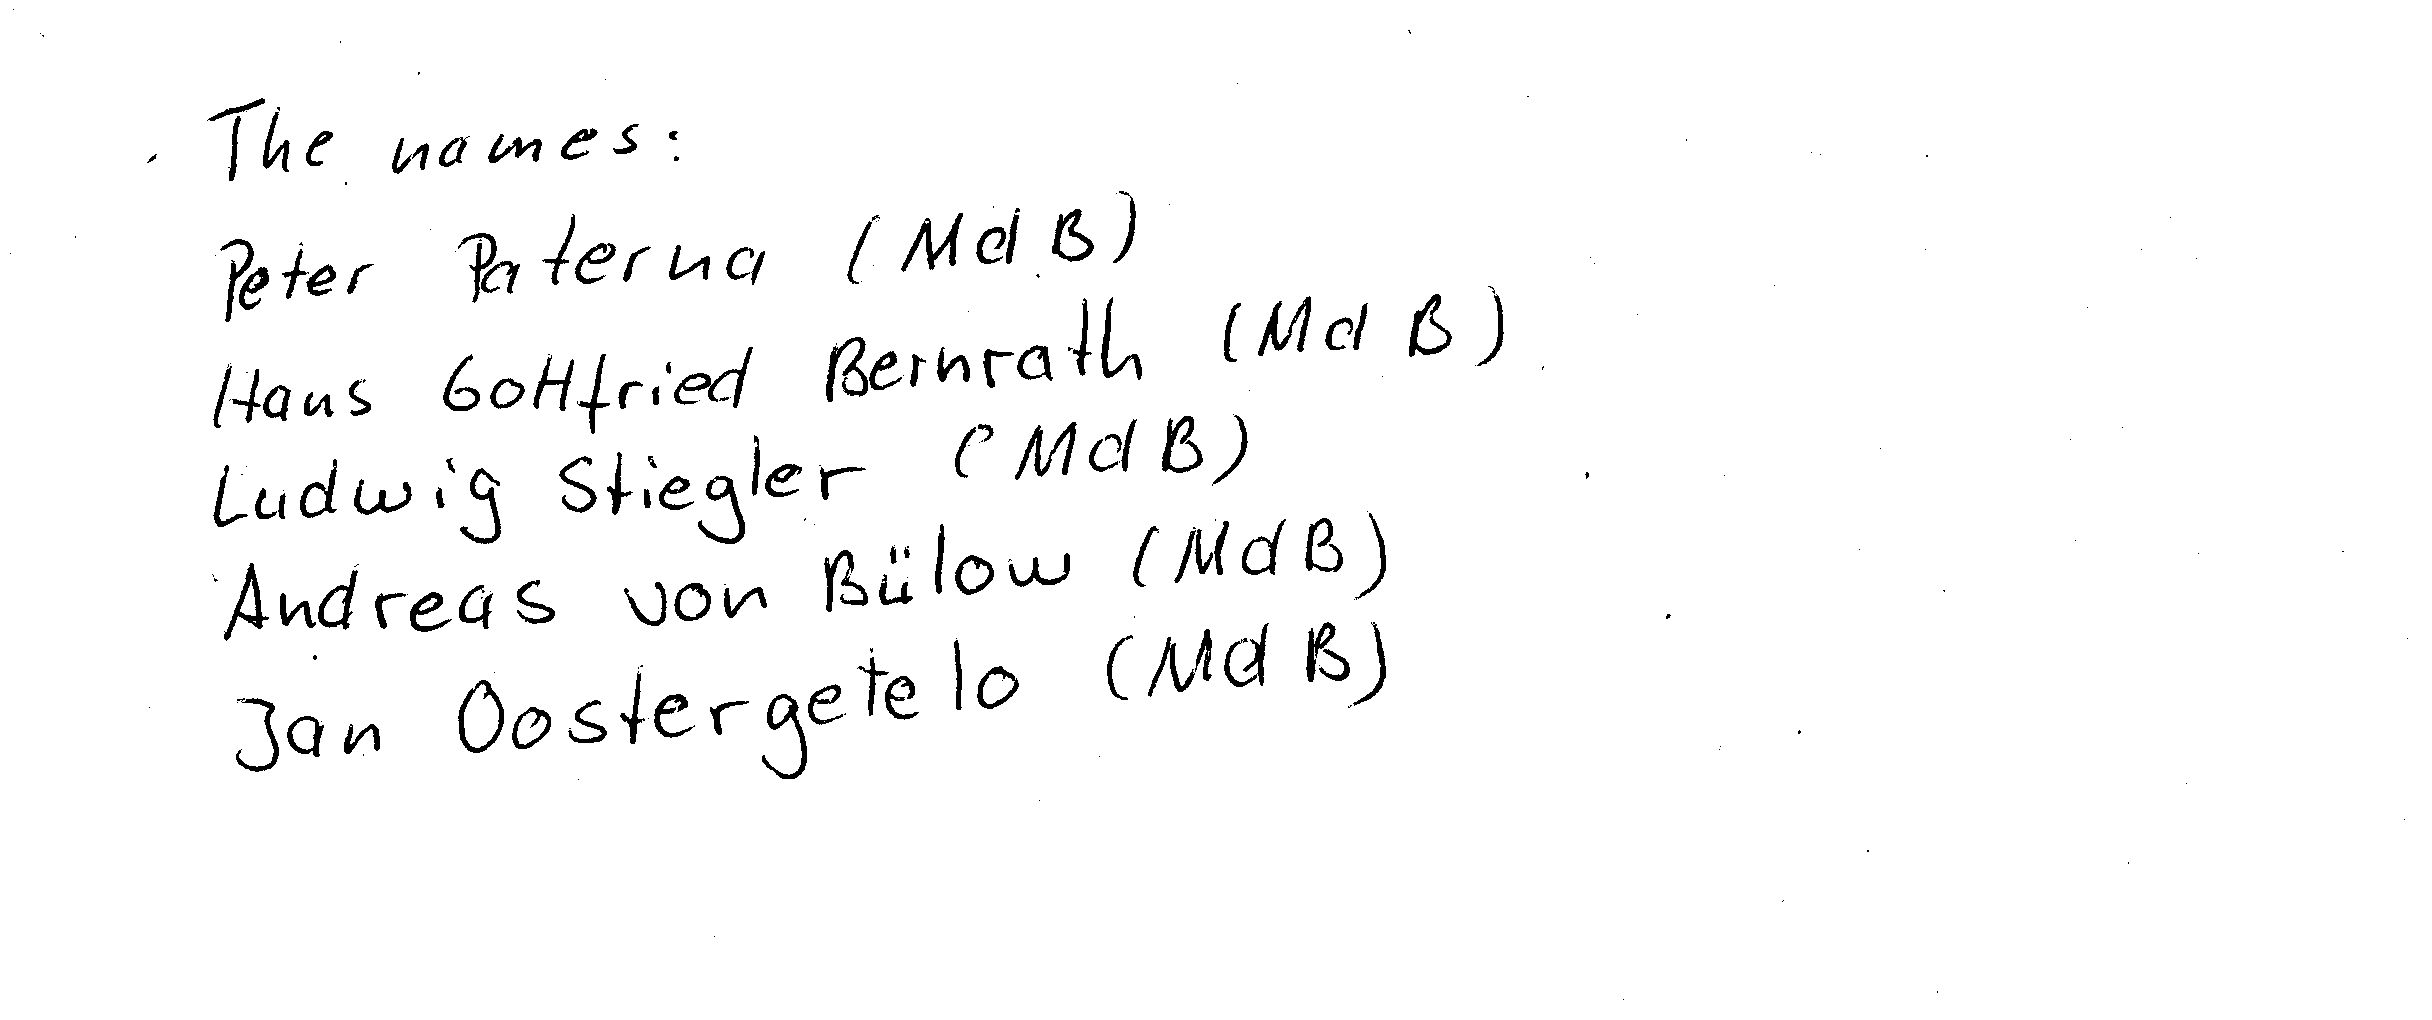 The names:
Peter Paterna (MdB)
Hans Gottfried Bernrath (MdB)
Ludwig Stiegler (MdB)
Andreas von Bülow (MdB)
Jan Oostergetelo (MdB)